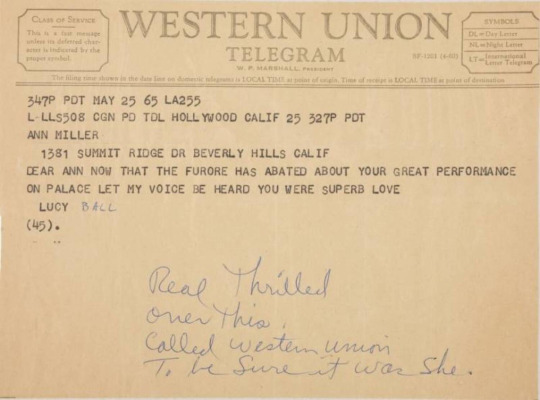 CLASS OF SERVICE
This is a fast message
unless its deferred char-
acter is indicated by the
proper symbol.
WESTERN UNION
TELEGRAM
W. P. MARSHALL, PRESIDENT
SYMBOLS
DL=Day Letter
NL=Night Letter
LT=International Letter Telegram
The filing time shown in the date line on domestic telegrams is LOCAL TIME at point of origin. Time of receipt is LOCAL TIME at point of destination
347P PDT MAY 25 65 LA255
L-LLS508 CGN PD TDL HOLLYWOOD CALIF 25 327P PDT
ANN MILLER
1381 SUMMIT RIDGE DR BEVERLY HILLS CALIF
DEAR ANN NOW THAT THE FURORE HAS ABATED ABOUT YOUR GREAT PERFORMANCE
ON PALACE LET MY VOICE BE HEARD YOU WERE SUPERB LOVE
LUCY BALL
(45).
Real Thrilled
over This.
Called Western Union
To be Sure it was She.